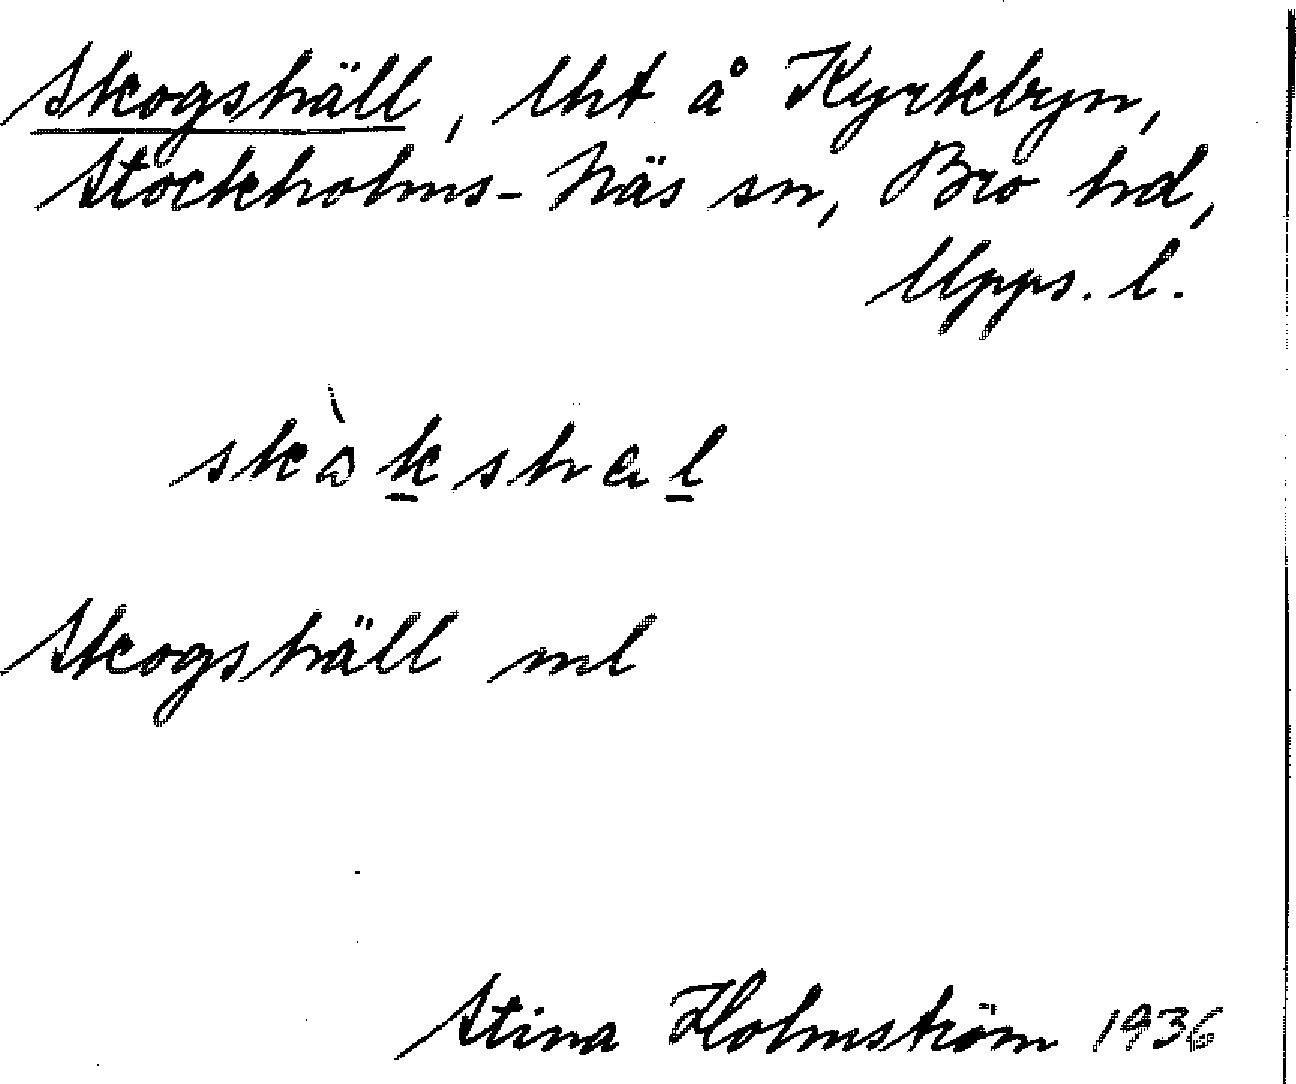 Skogshäll, lht å Kyrkbyn,
Stockholms-Näs sn, Bro hd,
Upps. l.
skòkshäl
Skogshäll ml
Stina Holmström 1936